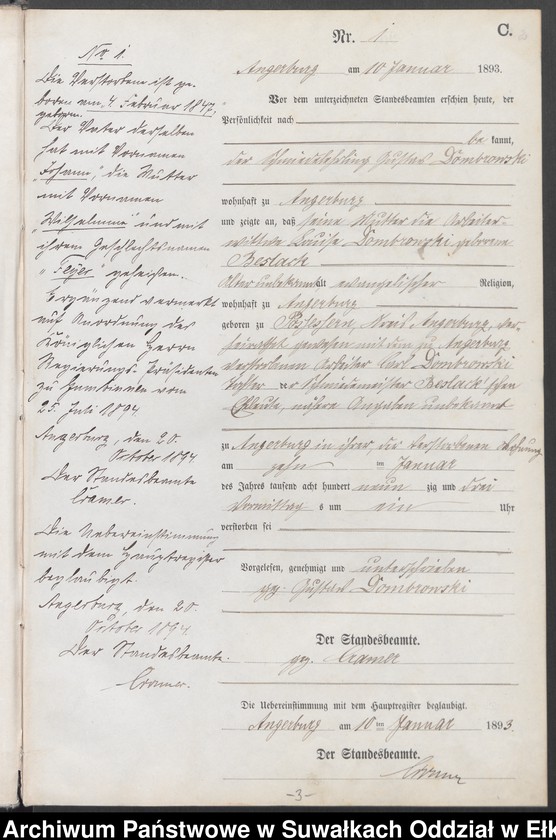 Nr. 1
C.
Angerburg am 10 Januar 1893.
Vor dem unterzeichneten Standesbeamten erschien heute, der
Persönlichkeit nach
be kannt,
der Schmiedelehrling Gustav Dombrowski
wohnhaft zu Angerburg
und zeigte an, daß seine Mutter die Arbeiter-
wittwe Louise Dombrowski geborene
Beslack
Alter unbekannt alt evangelischer Religion,
wohnhaft zu Angerburg
geboren zu Kreis Angerburg, ver-
heirathet gewesen mit dem zu Angerburg
verstorbenen Arbeiter Carl Dombrowski
Tochter der Schmiedmeister Beslack'schen
Eheleute, nähere Angaben unbekannt
zu Angerburg in ihrer, der Verstorbenen Wohnung
am zehn ten Januar
des Jahres tausend acht hundert neun zig und drei
Vormittag s um ein Uhr
verstorben sei
Vorgelesen, genehmigt und unterschrieben
gz. Gustav Dombrowski
Der Standesbeamte.
gz. Cramer
Die Uebereinstimmung mit dem Hauptregister beglaubigt.
Angerburg am 10 ten Januar 1893.
Der Standesbeamte.
Cramer
No 1.
Die Verstorbene ist ge-
boren am 4 Februar 1847.
geboren.
Der Vater derselben
hat mit Vornamen
"Johann", die Mutter
mit Vornamen
"Wilhelmine" und mit
ihrem Geschlechtsnamen
"Feyer" geheißen.
Ergänzend vermerkt
auf Anordnung des
Königlichen Herrn
Regierungs-Präsidenten
zu Gumbinnen vom
25. Juli 1894
Angerburg, den 20.
October 1894
Der Standesbeamte
Cramer.
Die Uebereinstimmung
mit dem Hauptregister
beglaubigt.
Angerburg, den 20.
October 1894
Der Standesbeamte.
Cramer.
-3-
Archiwum Państwowe w Suwałkach Oddział w Ełk